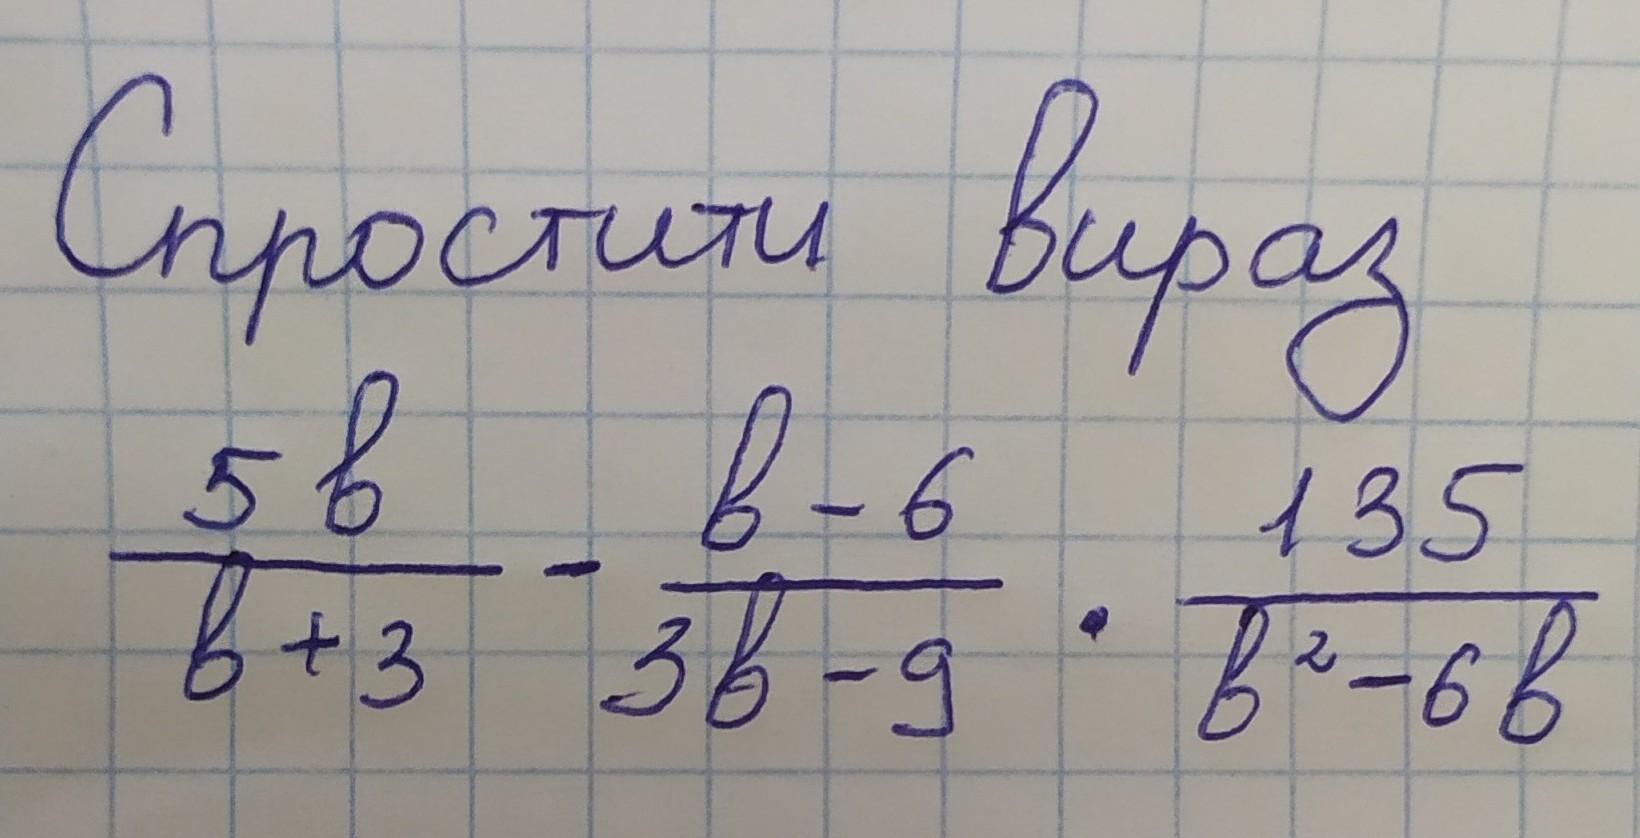 Спростити вираз
5в/в+3 - в-6/3в-9 · 135/в²-6в